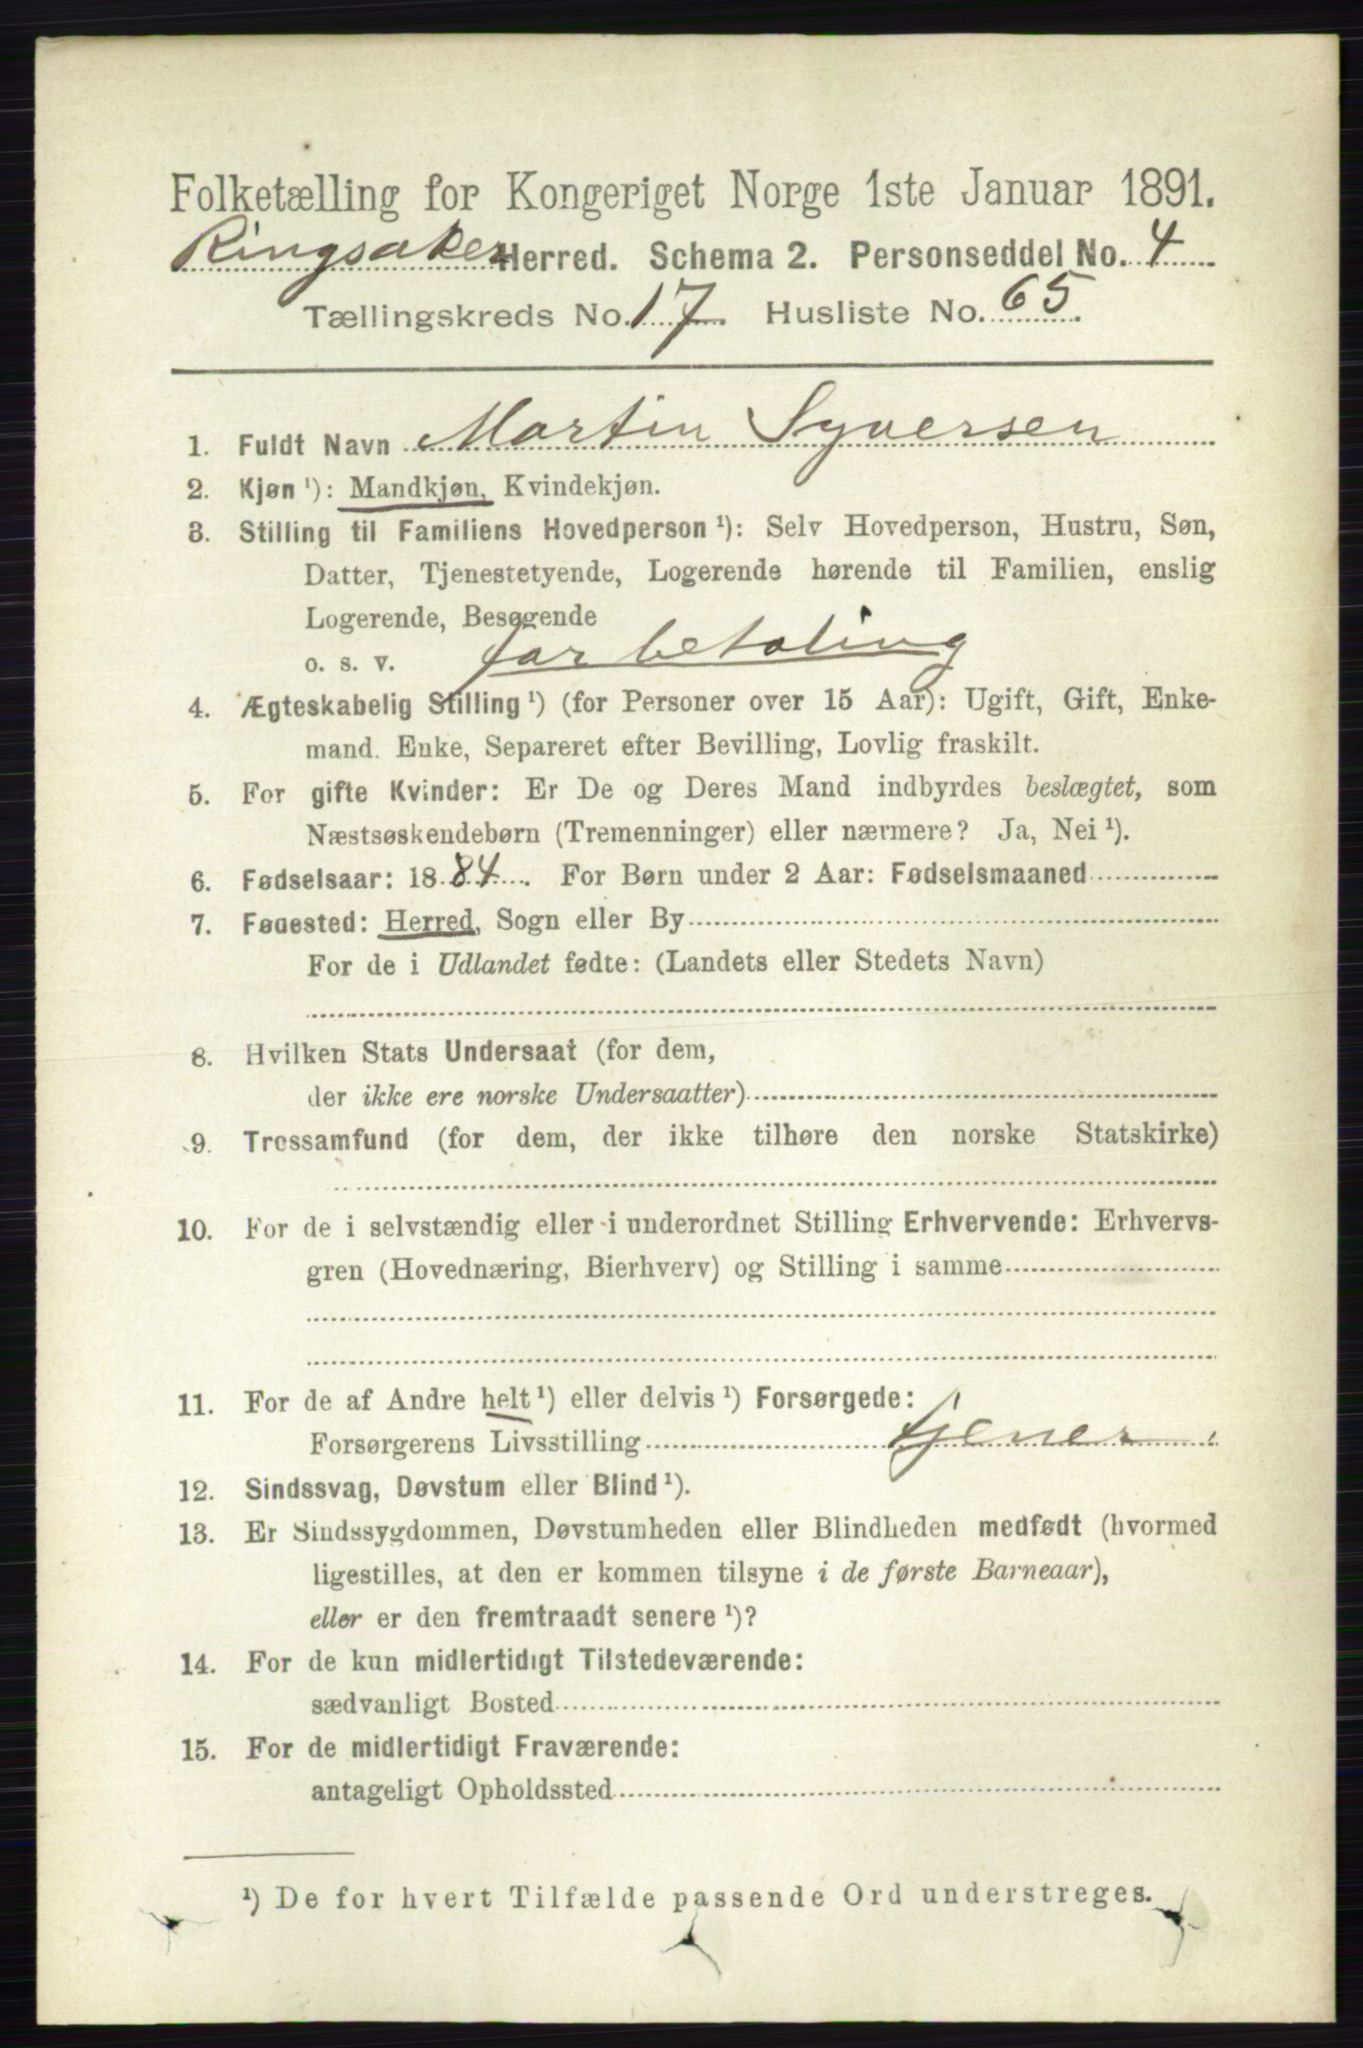 Folketælling for Kongeriget Norge 1ste Januar 1891.
Ringsaker Herred. Schema 2. Personseddel No. 4
Tællingskreds No. 17. Husliste No. 65.
1. Fuldt Navn Martin Syversen
2. Kjøn ¹): Mandkjøn, Kvindekjøn.
3. Stilling til Familiens Hovedperson ¹): Selv Hovedperson, Hustru, Søn,
Datter, Tjenestetyende, Logerende hørende til Familien, enslig
Logerende, Besøgende
o. s. v. for betaling
4. Ægteskabelig Stilling ¹) (for Personer over 15 Aar): Ugift, Gift, Enke-
mand. Enke, Separeret efter Bevilling, Lovlig fraskilt.
5. For gifte Kvinder: Er De og Deres Mand indbyrdes beslægtet, som
Næstsøskendebørn (Tremenninger) eller nærmere? Ja, Nei ¹).
6. Fødselsaar: 1884. For Børn under 2 Aar: Fødselsmaaned
7. Fødested: Herred, Sogn eller By
For de i Udlandet fødte: (Landets eller Stedets Navn)
8. Hvilken Stats Undersaat (for dem,
der ikke ere norske Undersaatter)
9. Trossamfund (for dem, der ikke tilhøre den norske Statskirke)
10. For de i selvstændig eller i underordnet Stilling Erhvervende: Erhvervs-
gren (Hovednæring, Bierhverv) og Stilling i samme
11. For de af Andre helt ¹) eller delvis ¹) Forsørgede:
Forsørgerens Livsstilling tjener
12. Sindssvag, Døvstum eller Blind ¹).
13. Er Sindssygdommen, Døvstumheden eller Blindheden medfødt (hvormed
ligestilles, at den er kommen tilsyne i de første Barneaar),
eller er den fremtraadt senere ¹)?
14. For de kun midlertidigt Tilstedeværende:
sædvanligt Bosted
15. For de midlertidigt Fraværende:
antageligt Opholdssted
¹) De for hvert Tilfælde passende Ord understreges.